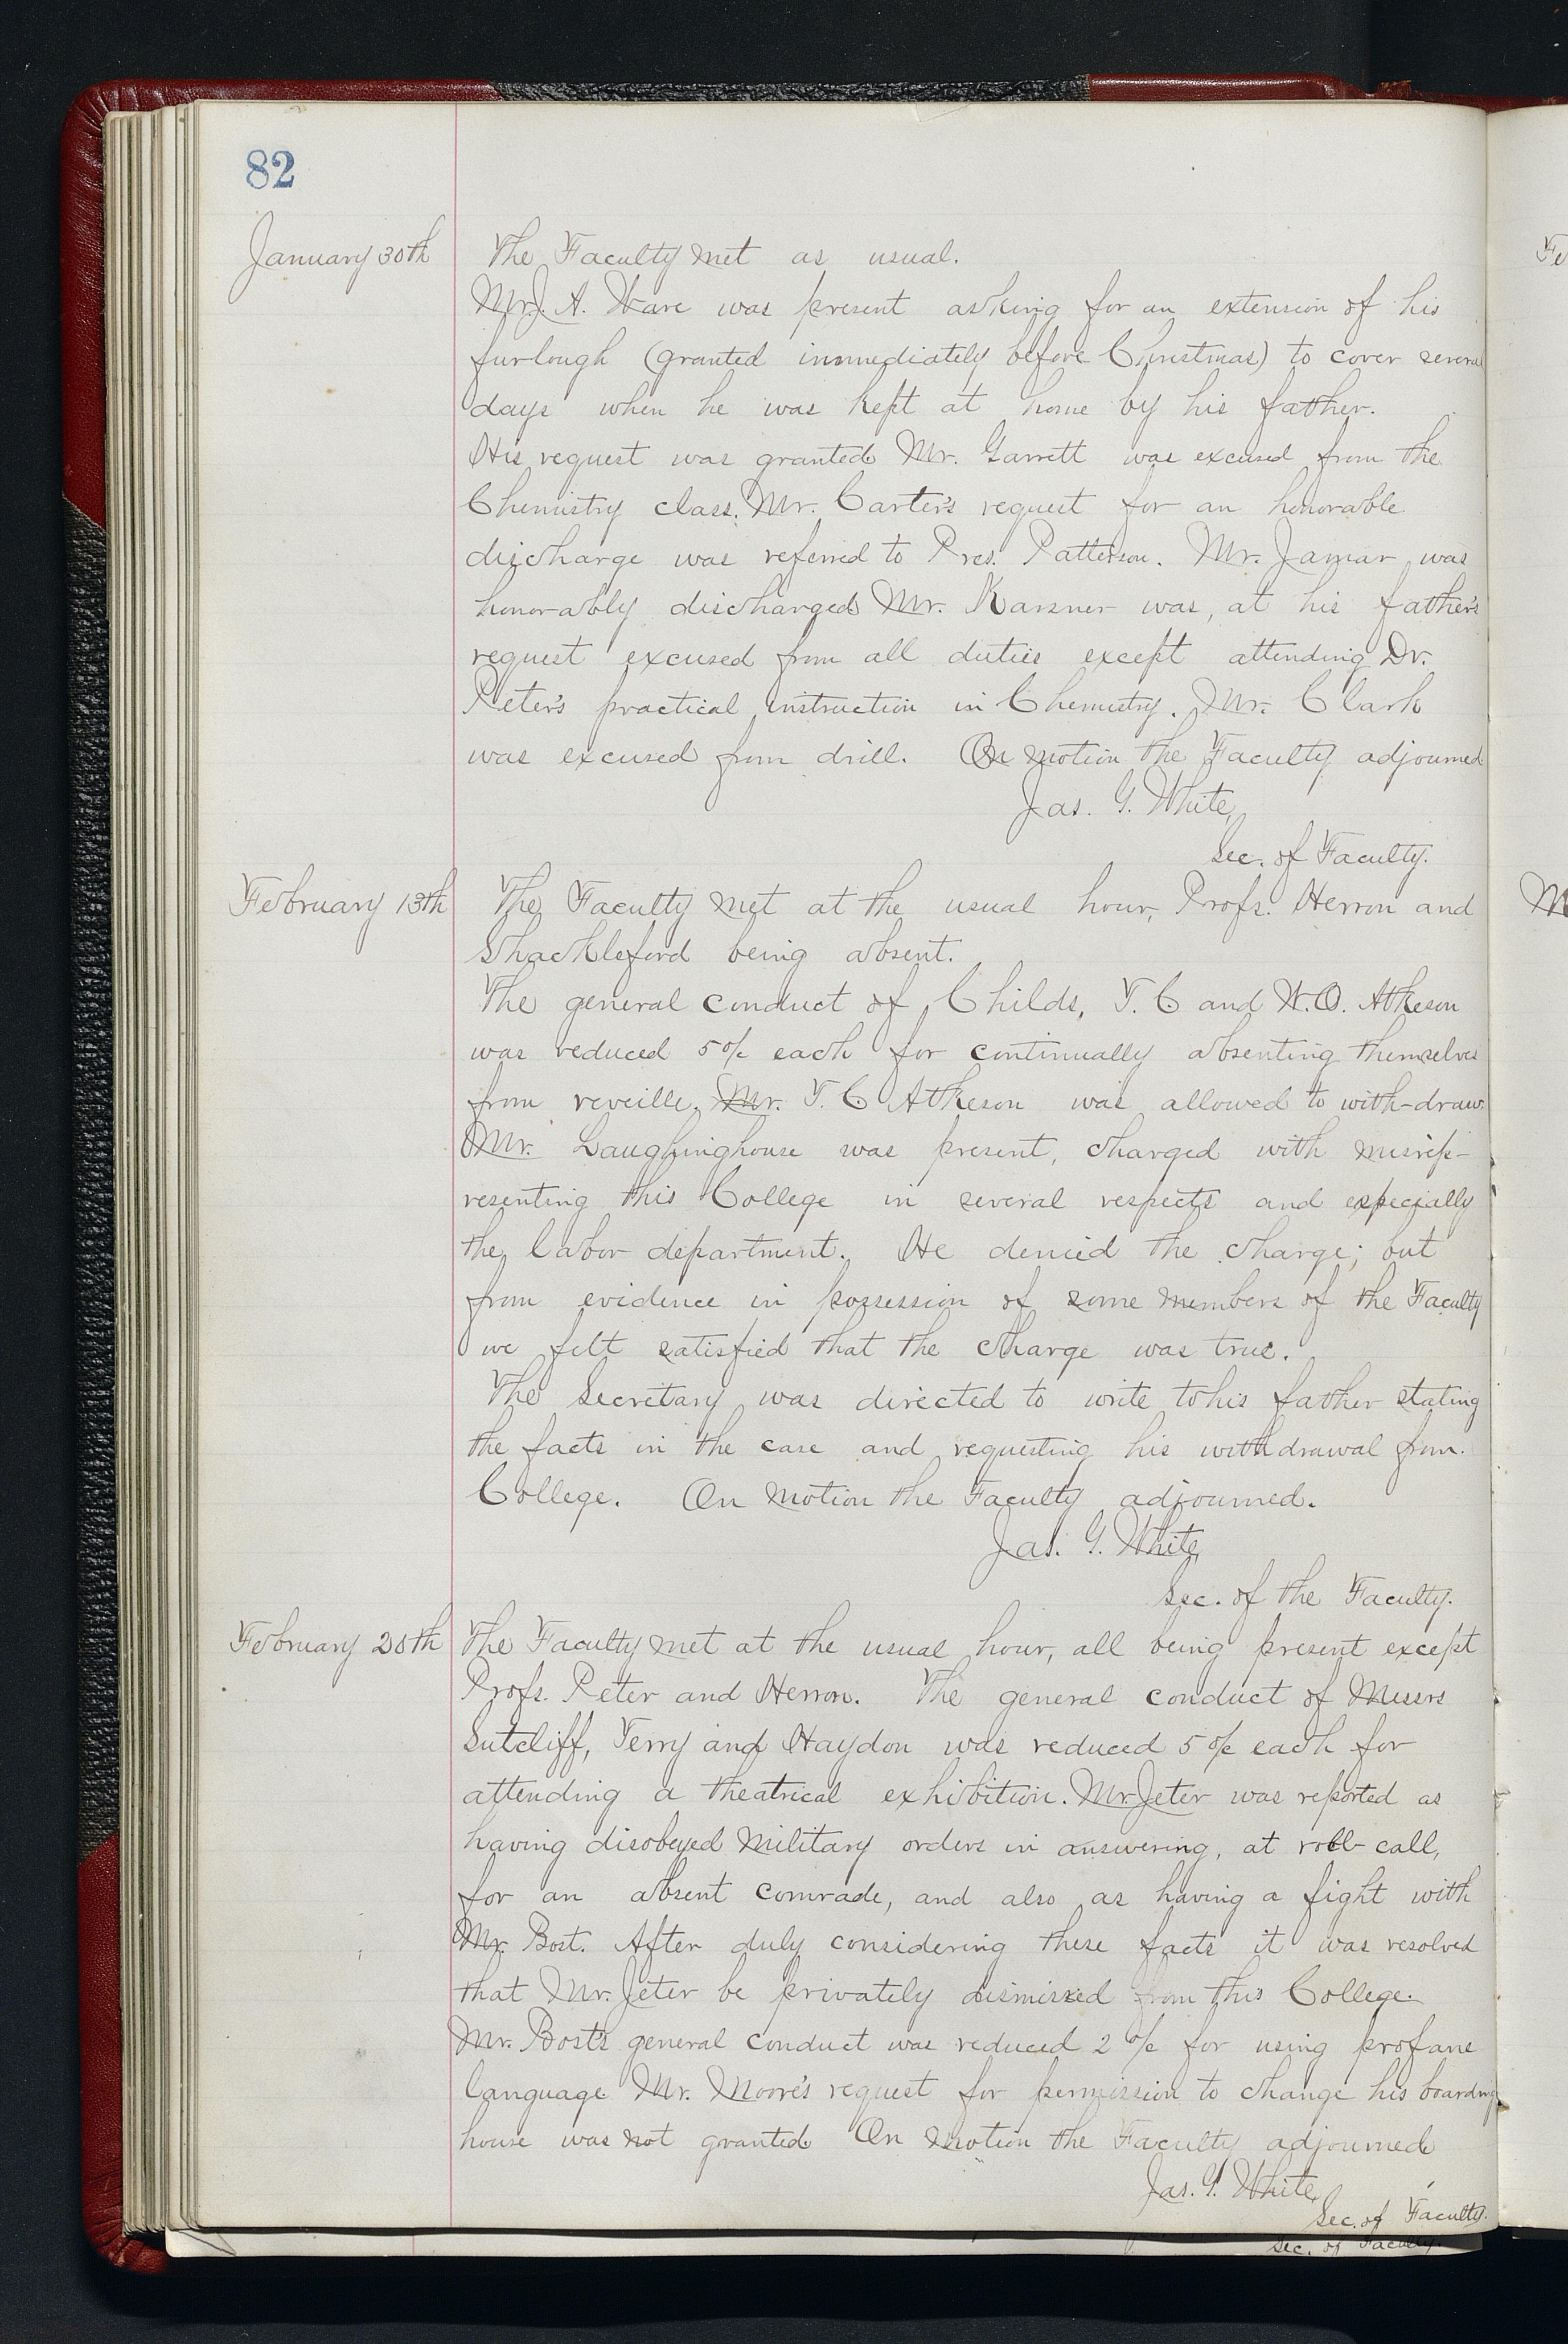 82
January 30th The Faculty met as usual.
Mr. J. A. Ware was present asking for an extension of his
furlough (granted immediately before Christmas) to cover several
days when he was kept at home by his father.
His request was granted. Mr. Garrett was excused from the
Chemistry class. Mr. Carter's request for an honorable
discharge was referred to Pres. Patterson. Mr. Jamar was
honorably discharged. Mr. Karsner was, at his father's
request excused from all duties except attending Dr.
Peter's practical instruction in Chemistry. Mr. Clark
was excused from drill. On motion the Faculty adjourned
Jas. G. White,
Sec. of Faculty.
February 13th The Faculty met at the usual hour, Profs. Herron and
Shackleford being absent.
The general conduct of Childs, T. C and W. O. Atkeson
was reduced 5% each for continually absenting themselves
from reveille. Mr. T. C Atkeson was allowed to with-draw.
Mr. Laughinghouse was present, charged with misrep-
resenting this College in several respects and especially
the labor department. He denied the charge; but
from evidence in possession of some members of the Faculty
we felt satisfied that the charge was true.
The Secretary was directed to write to his father stating
the facts in the case and requesting his withdrawal from
College. On motion the Faculty adjourned.
Jas. G. White,
Sec. of the Faculty.
February 20th The Faculty met at the usual hour, all being present except
Profs. Peter and Herron. The general conduct of Messrs
Sutcliff, Terry and Haydon was reduced 5% each for
attending a theatrical exhibition. Mr. Jeter was reported as
having disobeyed military orders in answering, at roll-call,
for an absent comrade, and also as having a fight with
Mr. Bost. After duly considering these facts it was resolved
that Mr. Jeter be privately dismissed from this College.
Mr. Bost's general conduct was reduced 2% for using profane
language. Mr. Moore's request for permission to change his boarding
house was not granted. On motion the Faculty adjourned
Jas. G. White,
Sec. of Faculty.
Sec. of Faculty.